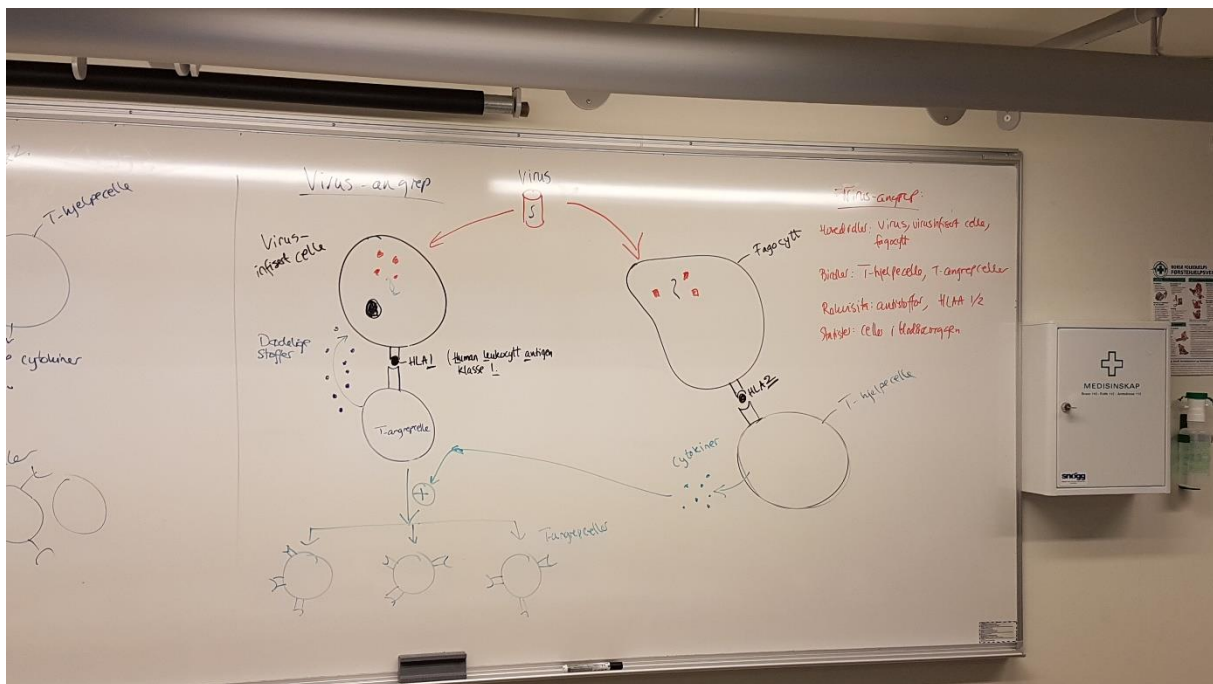 2.
T-hjelpecelle
cytokiner
ler
Virus-angrep
Virus
Virus-
infisert celle
Dødelige
stoffer
HLA1 (Human leukocytt antigen
klasse 1.
T-angrepcelle
T-angrepceller
Fagocytt
HLA2
T-hjelpecelle
Cytokiner
Virus-angrep:
Hovedroller: Virus, virusinfisert celle,
fagocytt
Biroller: T-hjelpecelle, T-angrepceller
Rekvisita: antistoffer, HLAA 1/2
Statister: celler i blodbanen
MEDISINSKAP
snøgg
FØRSTEHJELP